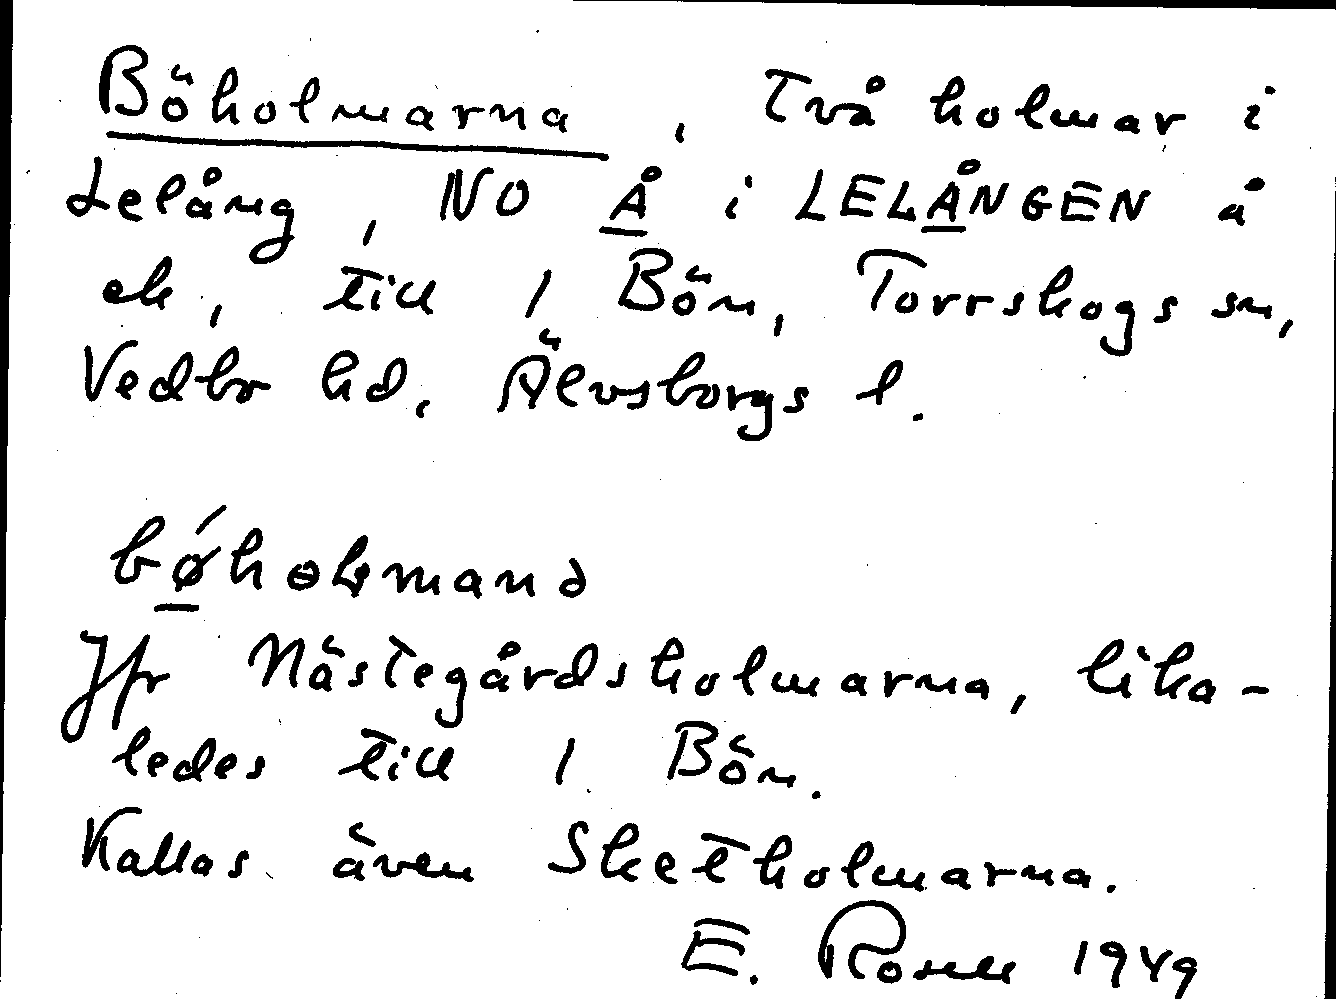 Böholmarna, Två holmar i
Lelång, NO Å i LELÅNGEN å
ek, till 1 Bön, Torrskogs sn,
Vedbo hd, Älvsborgs l.
Jfr Nästegårdsholmarna, lika-
ledes till 1 Bön.
Kallas även Sketholmarna.
E. Rosell 1949